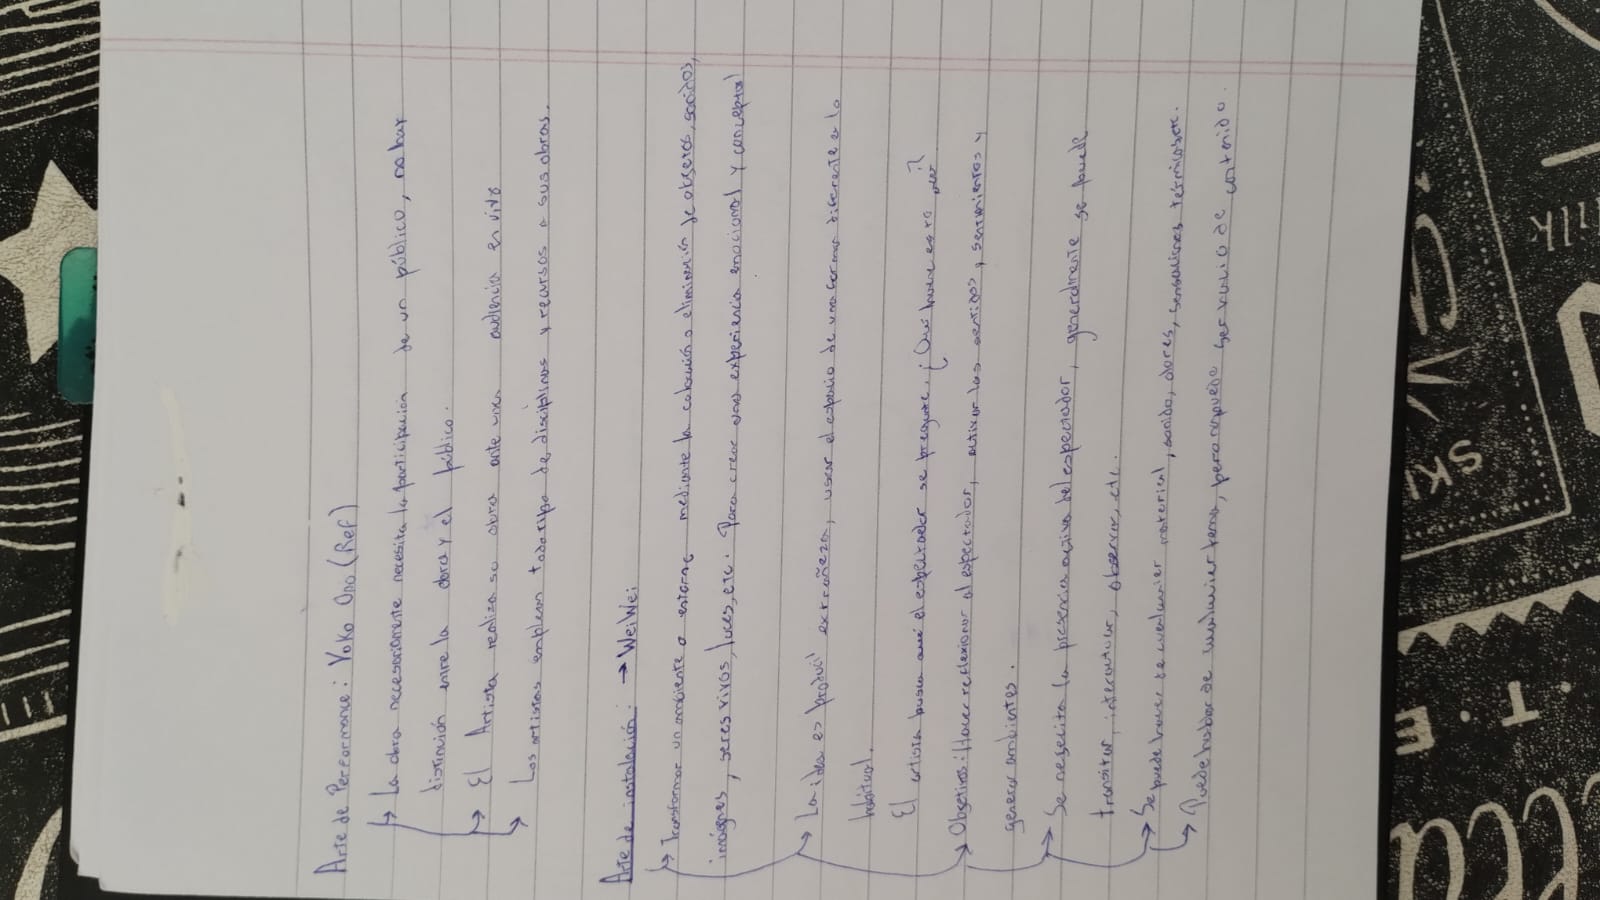 Arte de Performance: Yoko Ono (Ref)
La obra necesariamente necesita la participación de un público, no hay
distinción entre la obra y el público.
El Artista realiza su obra ante una audiencia en vivo
Los artistas emplean todo tipo de disciplinas y recursos a sus obras.
Arte de instalación: → WeiWei
Transformar un ambiente o entorno mediante la colocación o eliminación de objetos, sonidos,
imágnes, seres vivos, luces, etc. Para crear una experiencia emocional y conceptual
La idea es producir extrañeza, usar el espacio de una forma diferente a lo
habitual.
El artista busca que el espectador se pregunte. ¿Qué hace esto ?
Objetivos: Hacer reflexionar al espectador, activar los sentidos, sentimientos y
generar ambientes.
Se nesecita la presencia activa del espectador, generalmente se puede
transitar, interactuar, observar, etc.
Se puede hacer de cualquier material, sonido, olores, sensaciones térmicas etc.
Puede hablar de cualquier tema, pero no puede ser vacio de contenido.
SK
T.E
ilk